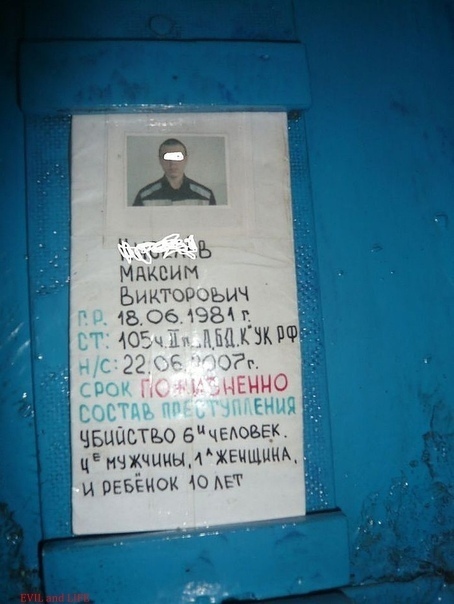 МАКСИМ
ВИКТОРОВИЧ
Г.Р. 18.06.1981 г.
СТ: 105 ч.II п. А,Б,Д,К" УК РФ
Н/С: 22.06.2007г.
СРОК ПОЖИЗНЕННО
СОСТАВ ПРЕСТУПЛЕНИЯ
УБИЙСТВО 6И ЧЕЛОВЕК.
ЧЕ МУЖЧИНЫ, 1А ЖЕНЩИНА,
И РЕБЁНОК 10 ЛЕТ
EVIL and LIFE